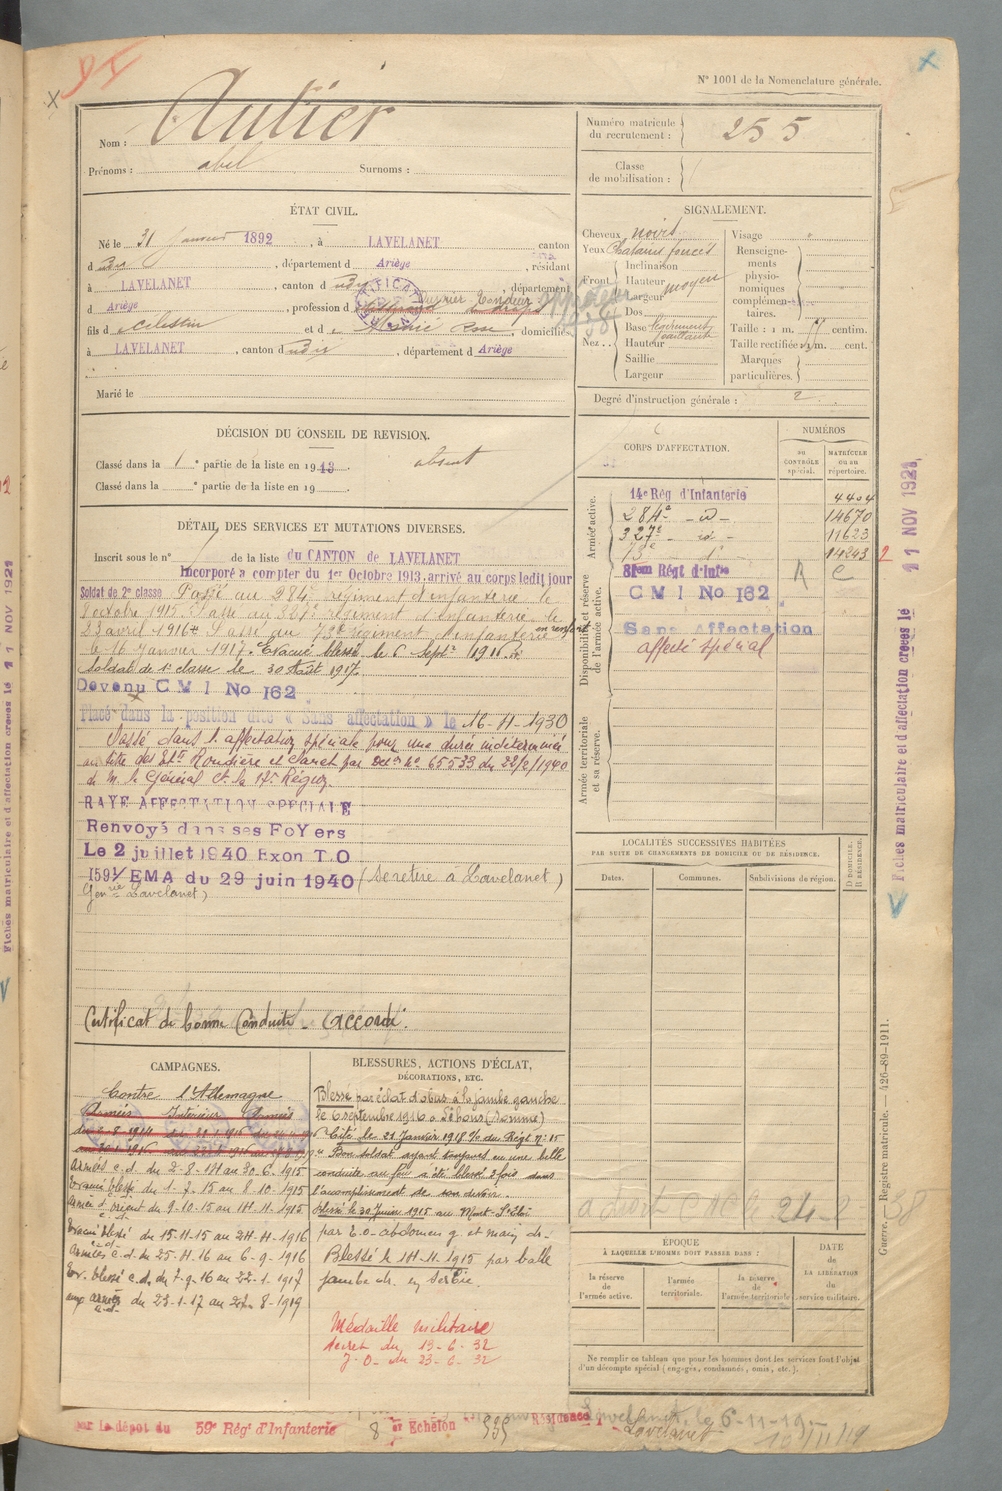 N° 1001 de la Nomenclature générale.
Nom : Autier
Prénoms : abel Surnoms :
Numéro matricule du recrutement : 255
Classe de mobilisation :
ÉTAT CIVIL.
Né le 31 janvier 1892, à LAVELANET canton
d udit, département d Ariège, résidant
à LAVELANET, canton d udit, département
d Ariège, profession d
fils d e Célestin et d e Rose, domiciliés
à LAVELANET, canton dudit, département d Ariège
Marié le
SIGNALEMENT.
Cheveux noirs
Yeux Chatains foncés
Front Inclinaison
Hauteur moyen
Largeur
Nez Dos
Base légèrement
Hauteur saillante
Saillie
Largeur
Visage
Renseignements physionomiques complémentaires.
Taille : 1 m. centim.
Taille rectifiée : 1 m. cent.
Marques particulières.
Degré d'instruction générale : 2
DÉCISION DU CONSEIL DE REVISION.
Classé dans la 1e partie de la liste en 1913. absent
Classé dans la e partie de la liste en 19
DÉTAIL DES SERVICES ET MUTATIONS DIVERSES.
Inscrit sous le n° 7 de la liste du CANTON de LAVELANET
Incorporé à compter du 1er Octobre 1913, arrivé au corps ledit jour
Soldat de 2e classe Passé au 284e régiment d'infanterie le
8 octobre 1915. Passé au 327e régiment d'infanterie le
23 avril 1916 Passé au 73e régiment d'infanterie en renfort
le 16 Janvier 1917. Evacué blessé le 6 Septe 1916
Soldat de 1e classe le 30 Août 1917.
Devenu C M I No 162
Placé dans la position dite « Sans affectation » le 16-11-1930
Passé dans l'affectation spéciale pour une durée indéterminée
au titre des Ets Roudière et Canet par Décon No 65533 du 22/2/1940
de M. le Général Ct la 17e Région
RAYE AFFECTATION SPECIALE
Renvoyé dans ses FoYers
Le 2 juillet 1940 Exon T.O
1591/EMA du 29 juin 1940 (se retire à Lavelanet)
Genrie Lavelanet)
Certificat de bonne Conduite - accordé.
CORPS D'AFFECTATION.
NUMÉROS
AU CONTRÔLE spécial.
MATRICULE ou au répertoire.
Armée active.
14e Rég d'Infanterie 4404
284e - id - 14670
327e - id - 11623
73e d° 14243
Disponibilité et réserve de l'armée active.
81em Régt d'Infie R C
C M I No 162
Sans Affectation
affecté spécial
Armée territoriale et sa réserve.
LOCALITÉS SUCCESSIVES HABITÉES
PAR SUITE DE CHANGEMENTS DE DOMICILE OU DE RÉSIDENCE.
Dates. Communes. Subdivisions du région. D. DOMICILE. R. RÉSIDENCE.
CAMPAGNES.
Contre l'Allemagne
Armées Intérieur Armées
Armées c.d. du 2-8-14 au 30-6-1915
Evacué blessé du 1-7-15 au 8-10-1915
Armée d'orient du 9-10-15 au 14-11-1915
Evacué blessé du 15-11-15 au 24-11-1916
Armées c.d. du 25-11-16 au 6-9-1916
Ev. blessé c.d. du 7-9-16 au 22-1-1917
aux armées c.d. du 23-1-17 au 27-8-1919
BLESSURES, ACTIONS D'ÉCLAT,
DÉCORATIONS, ETC.
Blessé par éclat d'obus à la jambe gauche
le 6 septembre 1916 à Lihons (Somme)
Cité le 21 Janvier 1918 % du Régt n° 15
" Bon soldat ayant toujours eu une belle
conduite au feu a été blessé 3 fois dans
l'accomplissement de son devoir.
Blessé le 30 Juin 1915 au Mont-St Eloi
par E.O. abdomen g. et main dr.
Blessé le 14.11.1915 par balle
jambe dr. en Serbie.
Médaille militaire
décret du 13-6-32
J.O. du 23-6-32
ÉPOQUE
À LAQUELLE L'HOMME DOIT PASSER DANS :
la réserve de l'armée active.
l'armée territoriale.
la réserve de l'armée territoriale
DATE de LA LIBÉRATION du service militaire.
Ne remplir ce tableau que pour les hommes dont les services font l'objet
d'un décompte spécial (engagés, condamnés, omis, etc.).
par le dépôt du 59e Rég d'Infanterie 8 er Echelon 535 Résidence : Lavelanet, le 6-11-19
Lavelanet
Fiches matriculaire et d'affectation créées le 11 NOV 1921
Fiches matriculaire et d'affectation créées le 11 NOV 1921
Guerre. Registre matricule. — 426-89-1911.